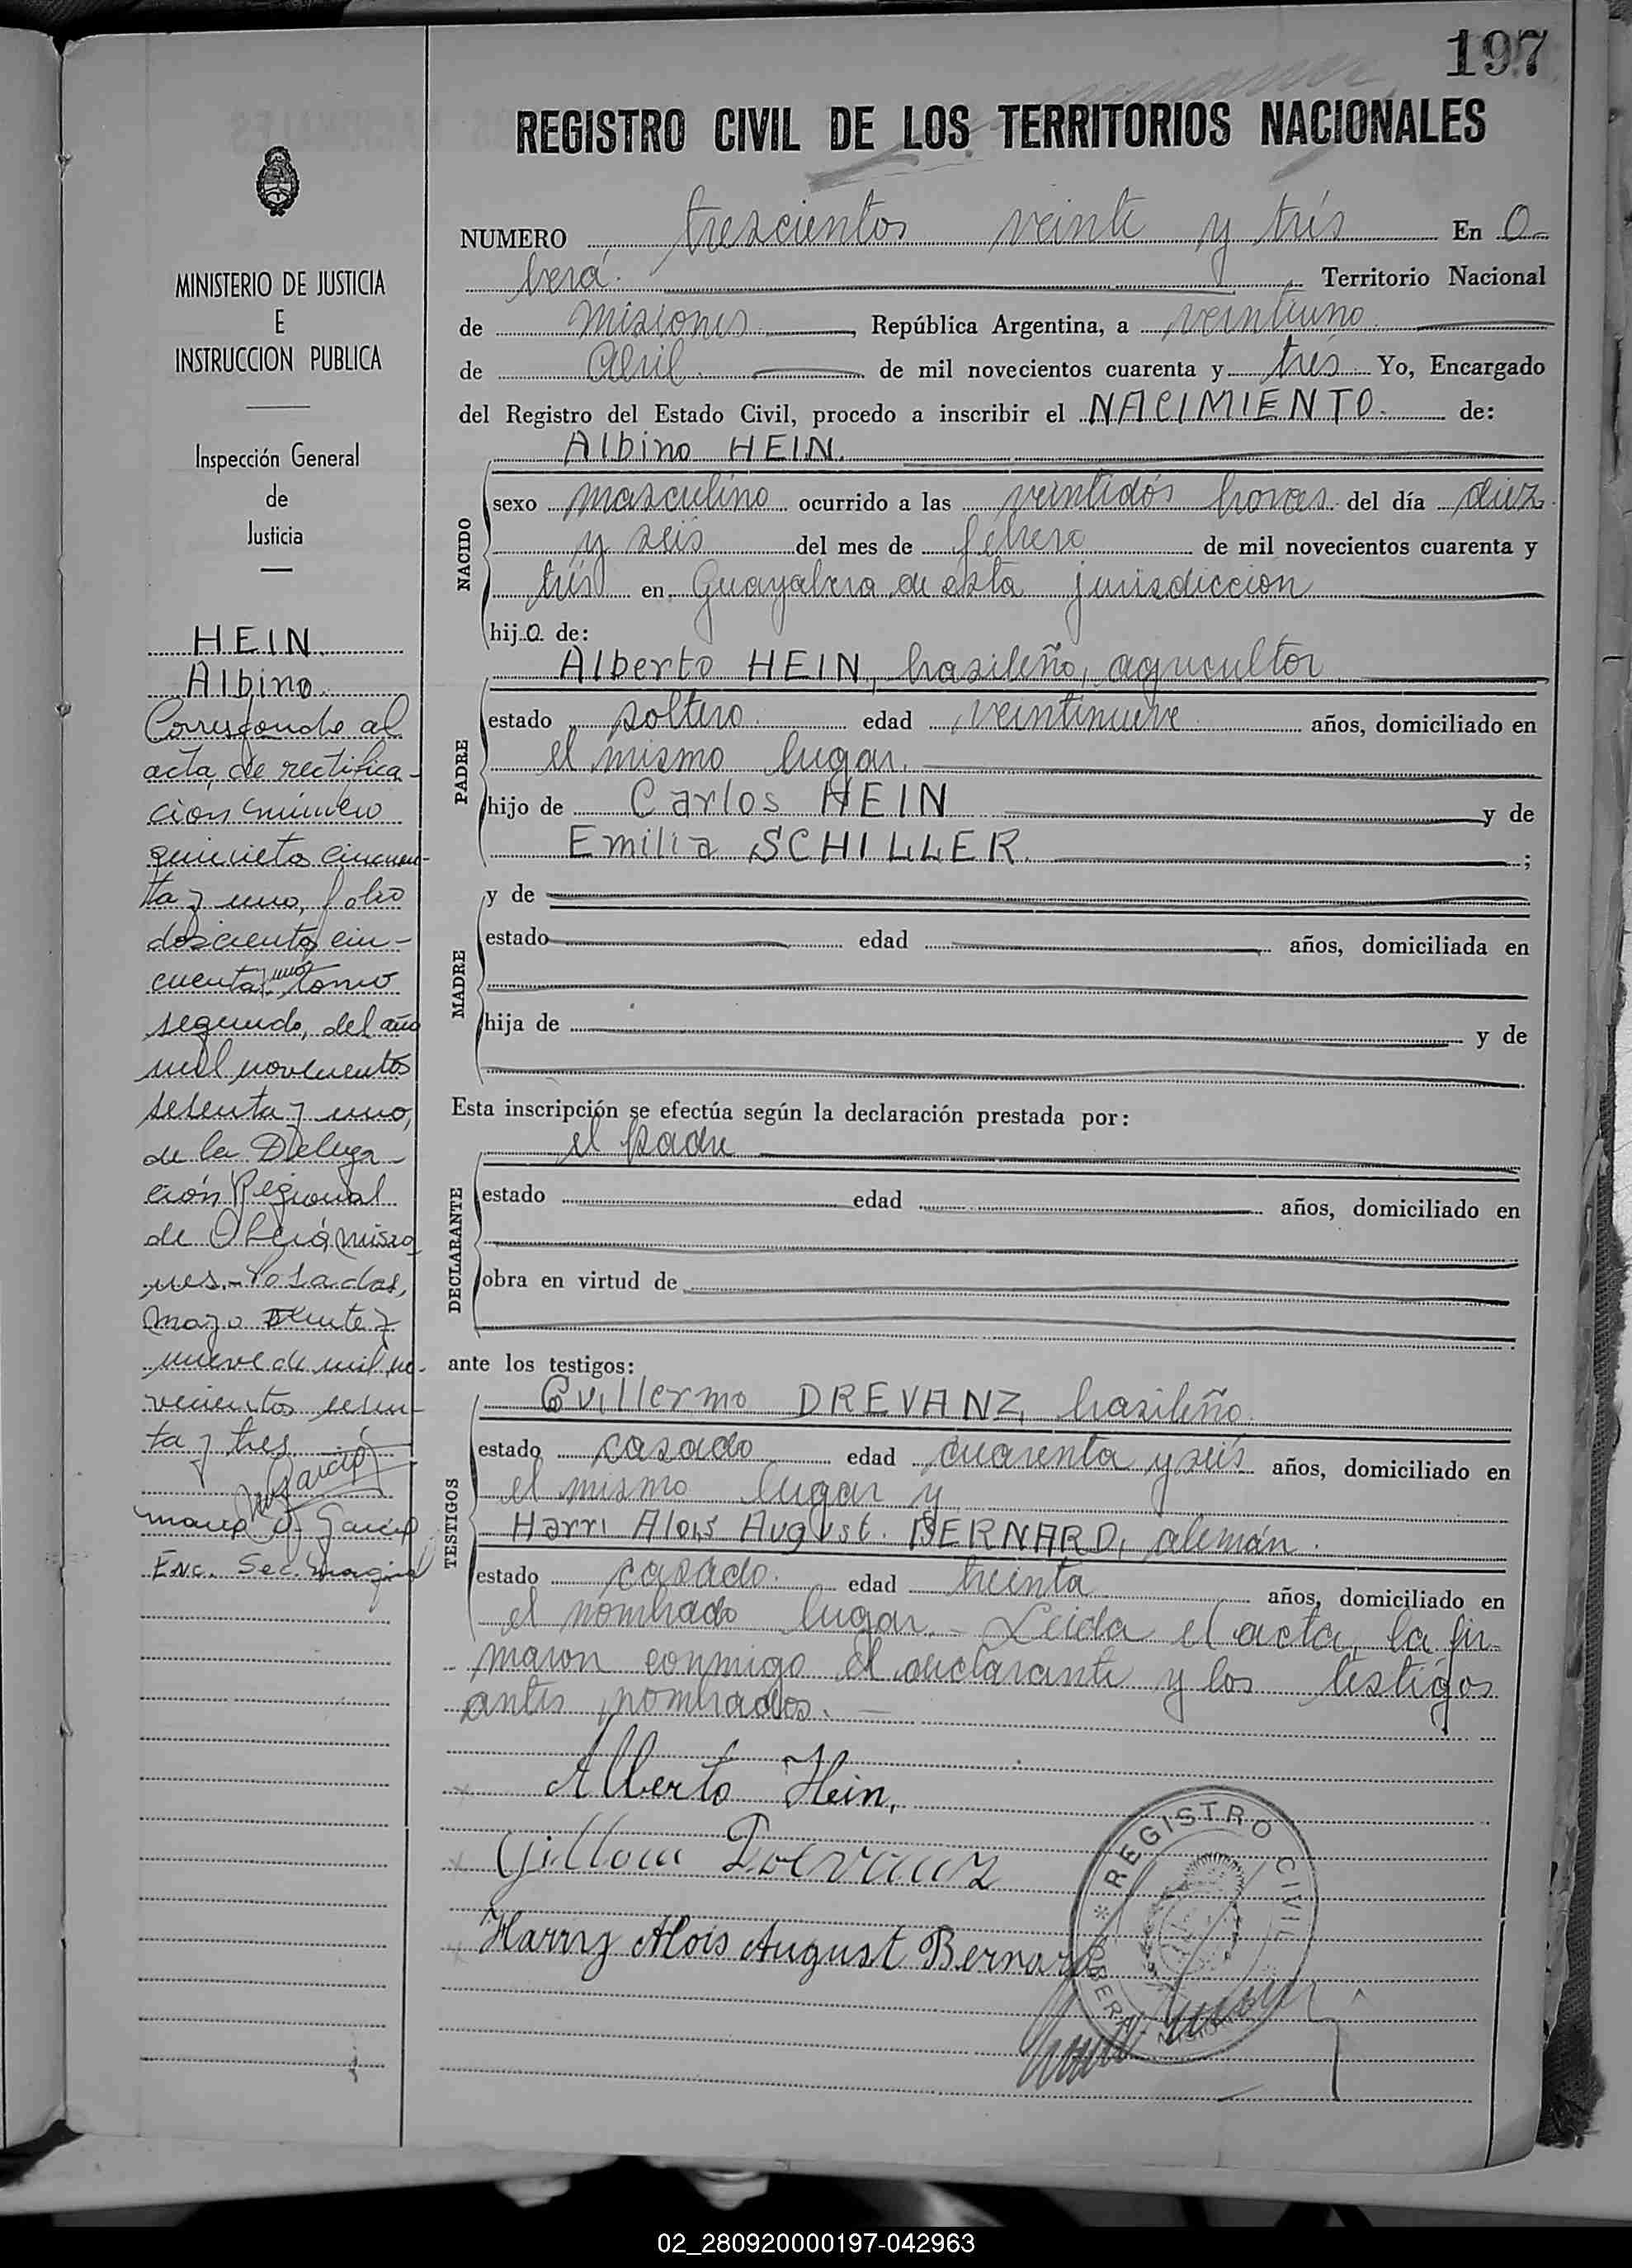 197
REGISTRO CIVIL DE LOS TERRITORIOS NACIONALES
NUMERO trescientos veinte y trés En O-
berá. Territorio Nacional
de Misiones, República Argentina, a veintiuno
de Abril. de mil novecientos cuarenta y trés Yo, Encargado
del Registro del Estado Civil, procedo a inscribir el NACIMIENTO. de:
Albino HEIN.
NACIDO
sexo masculino ocurrido a las veintidós horas del día diez
y seis del mes de febrero de mil novecientos cuarenta y
trés en Guayabera de esta jurisdiccion
hijo de:
PADRE
Alberto HEIN, brasileño, agricultor
estado soltero. edad veintinueve años, domiciliado en
el mismo lugar.
hijo de Carlos HEIN y de
Emilia SCHILLER. ;
MADRE
y de
estado edad años, domiciliada en
hija de y de
Esta inscripción se efectúa según la declaración prestada por:
el padre
DECLARANTE
estado edad años, domiciliado en
obra en virtud de
ante los testigos:
TESTIGOS
Guillermo DREVANZ, brasileño.
estado casado edad cuarenta y seis años, domiciliado en
el mismo lugar y
Harri Alois August. BERNARD, alemán.
estado casado. edad treinta años, domiciliado en
el nombrado lugar.- Leida el acta, la fir-
maron conmigo el declarante y los testigos
antes nombrados.-
Alberto Hein,
Drevanz
Harry Alois August Bernard
REGISTRO CIVIL
OBERA MISIONES
MINISTERIO DE JUSTICIA
E
INSTRUCCION PUBLICA
Inspección General
de
Justicia
HEIN.
Albino.
Corresponde al
acta de rectifica-
ción número
quinientos cincuen-
ta y uno, folio
doscientos cin-
cuenta y uno tomo
segundo, del año
mil novecientos
sesenta y uno,
de la Delega-
ción Regional
de Oberá, Misio-
nes.- Posadas,
Mayo veinte y
nueve de mil no-
vecientos sesen-
ta y tres.
García
García
Enc. Sec. Marginal
02_280920000197-042963